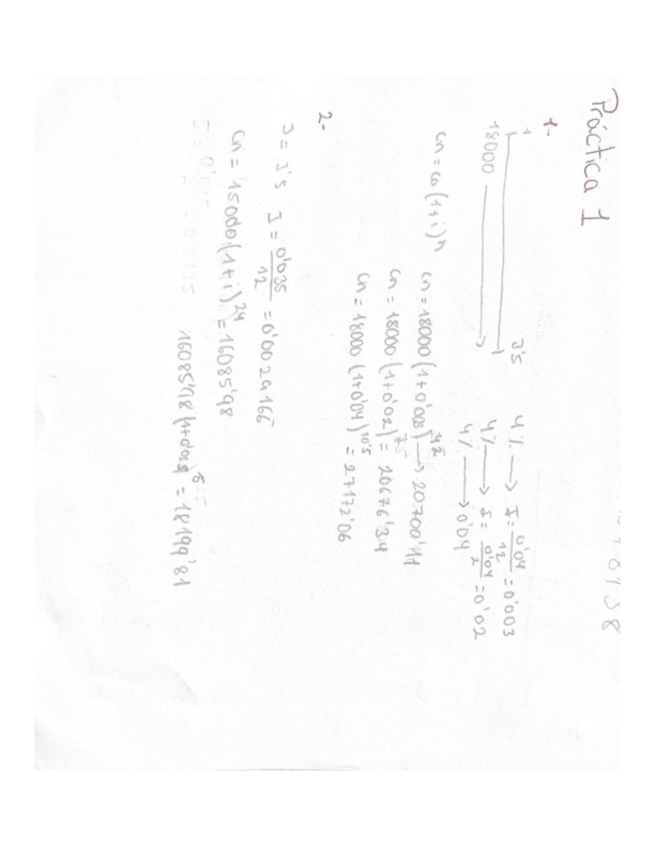 Práctica 1
1.-
1 3'5
18000
4% → I = 0'04/12 = 0'003
4% → I = 0'04/2 = 0'02
4% → 0'04
cn = co(1+i)^n
cn = 18000 (1+0'003)^42 → 20700'11
cn = 18000 (1+0'02)^7'5 = 20676'34
cn = 18000 (1+0'04)^10'5 = 27172'06
2-
J = 3'5 I = 0'035/12 = 0'0029166
cn = 15000(1+i)^24 = 16085'98
= 18199'81